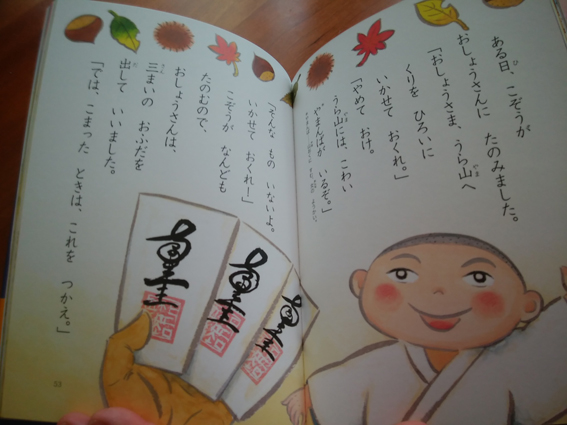 ある日、こぞうが
おしょうさんに たのみました。
「おしょうさま、うら山へ
くりを ひろいに
いかせて おくれ。」
「やめて おけ。
うら山には、こわい
やまんばが いるぞ。」
「そんな もの いないよ。
いかせて おくれー」
こぞうが なんども
たのむので、
おしょうさんは、
三まいの おふだを
出して いいました。
「では、こまった ときは、これを つかえ。」